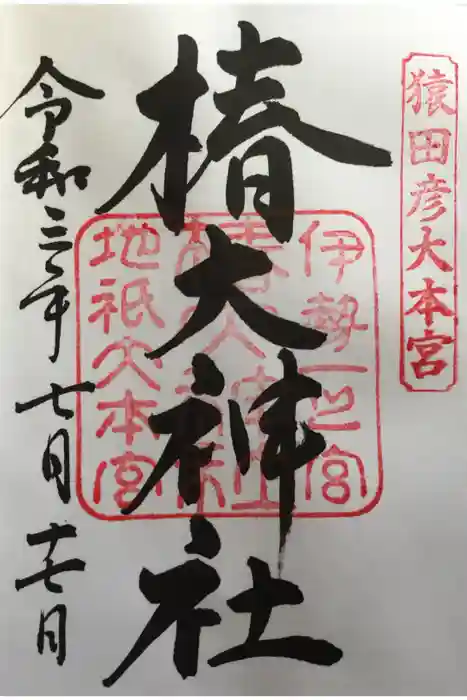 猿田彦大本宮
伊勢一之宮
椿大神社
椿大神社
地祇大本宮
令和三年七月十七日